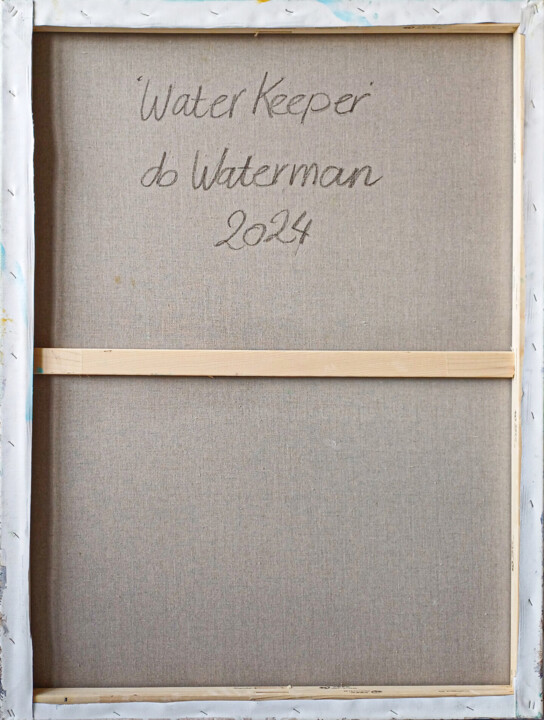 'Water Keeper'
do Waterman
2024